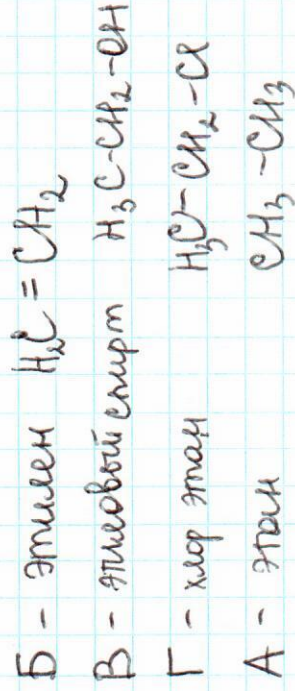 Б - этилен H₂C = CH₂
В - этиловый спирт H₃C-CH₂-OH
Г - хлор этан H₃C-CH₂-Cl
А - этан CH₃-CH₃